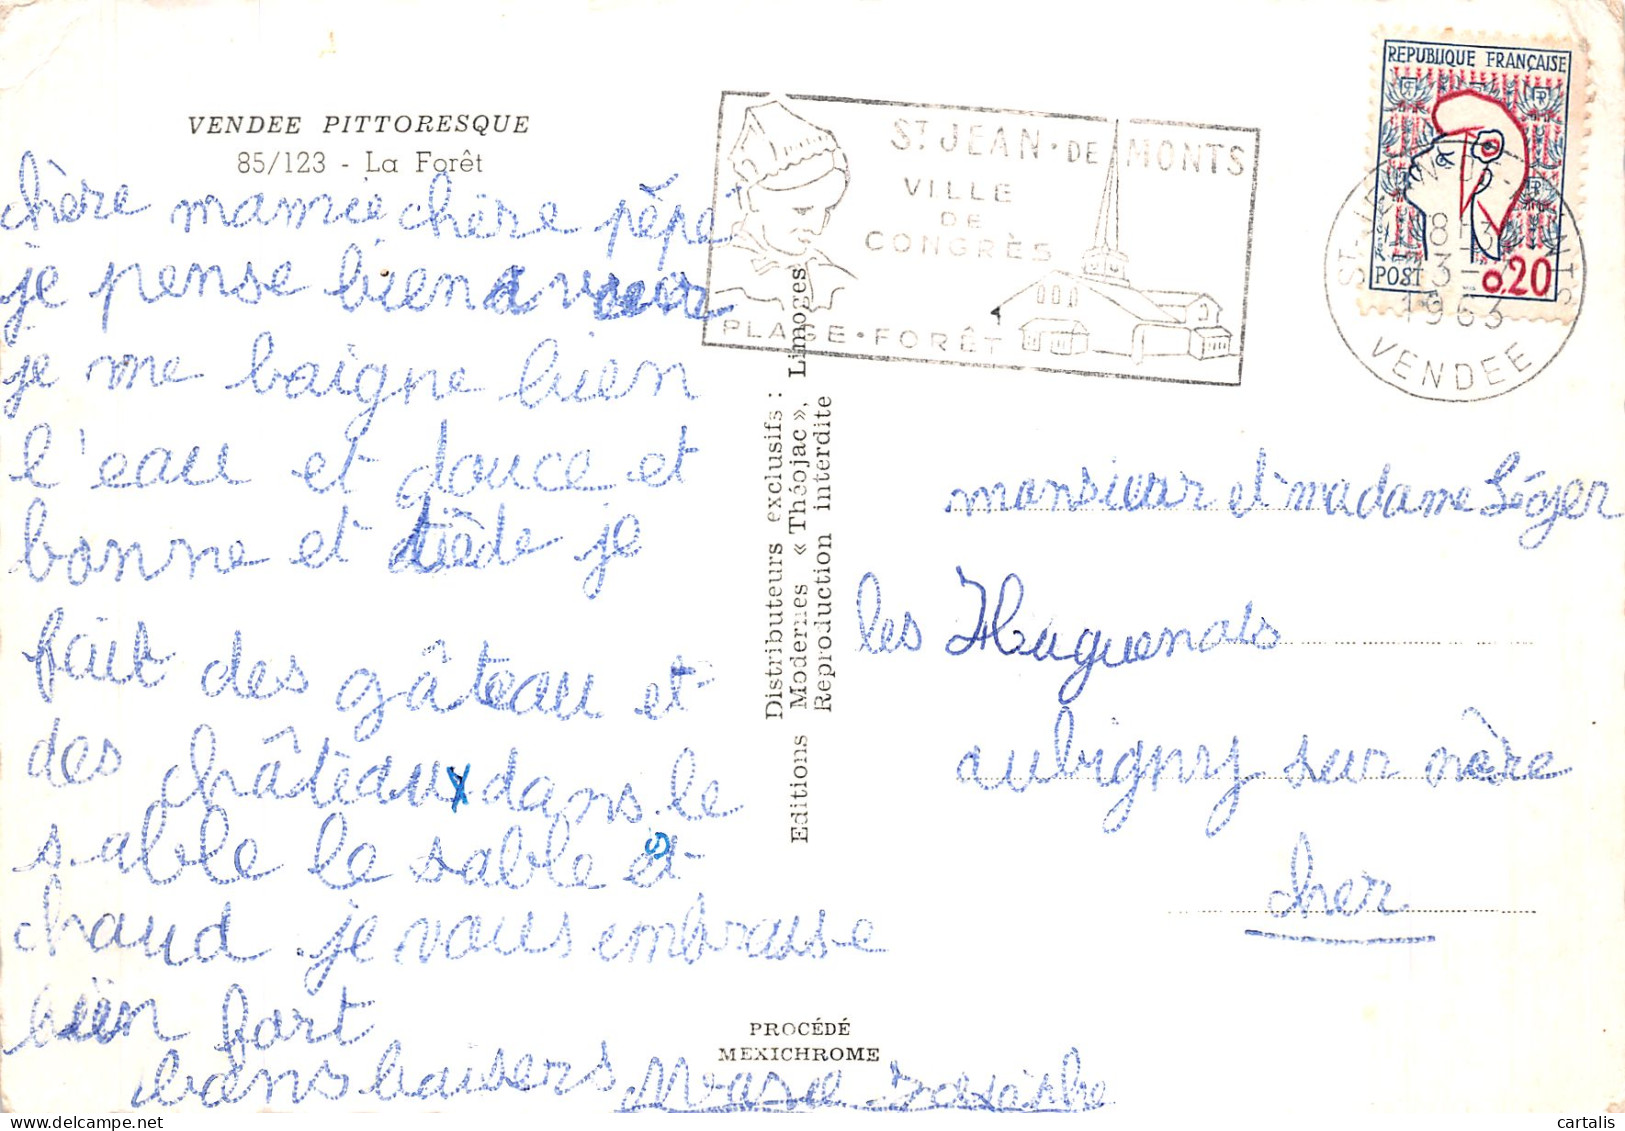 VENDEE PITTORESQUE
85/123 - La Forêt
chère mamie chère pépé
je pense bien a vous
je me baigne bien
l'eau et douce et
bonne et tiède je
fait des gâteau et
des châteaux dans le
sable le sable et
chaud. je vous embrasse
bien fort
bons baisers
Distributeurs exclusifs :
Editions Modernes « Théojac », Limoges
Reproduction interdite
PROCÉDÉ
MEXICHROME
ST JEAN • DE MONTS
VILLE
DE
CONGRÈS
PLAGE • FORÊT
REPUBLIQUE FRANÇAISE
POST
0,20
1963
VENDEE
monsieur et madame Léger
les Huguenots
aubigny sur nère
cher
cartalis
delcampe.net